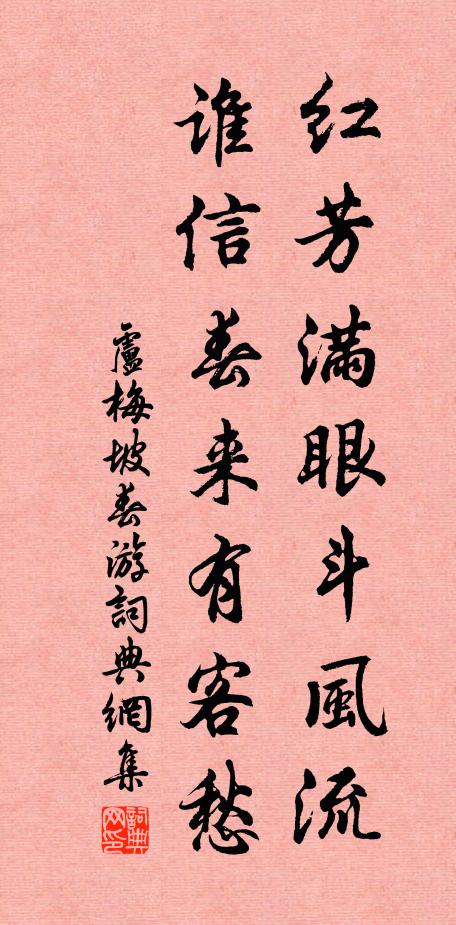 红芳滿眼斗風流
谁信春来有客愁
盧梅坡春游詞典網集
詞典网印